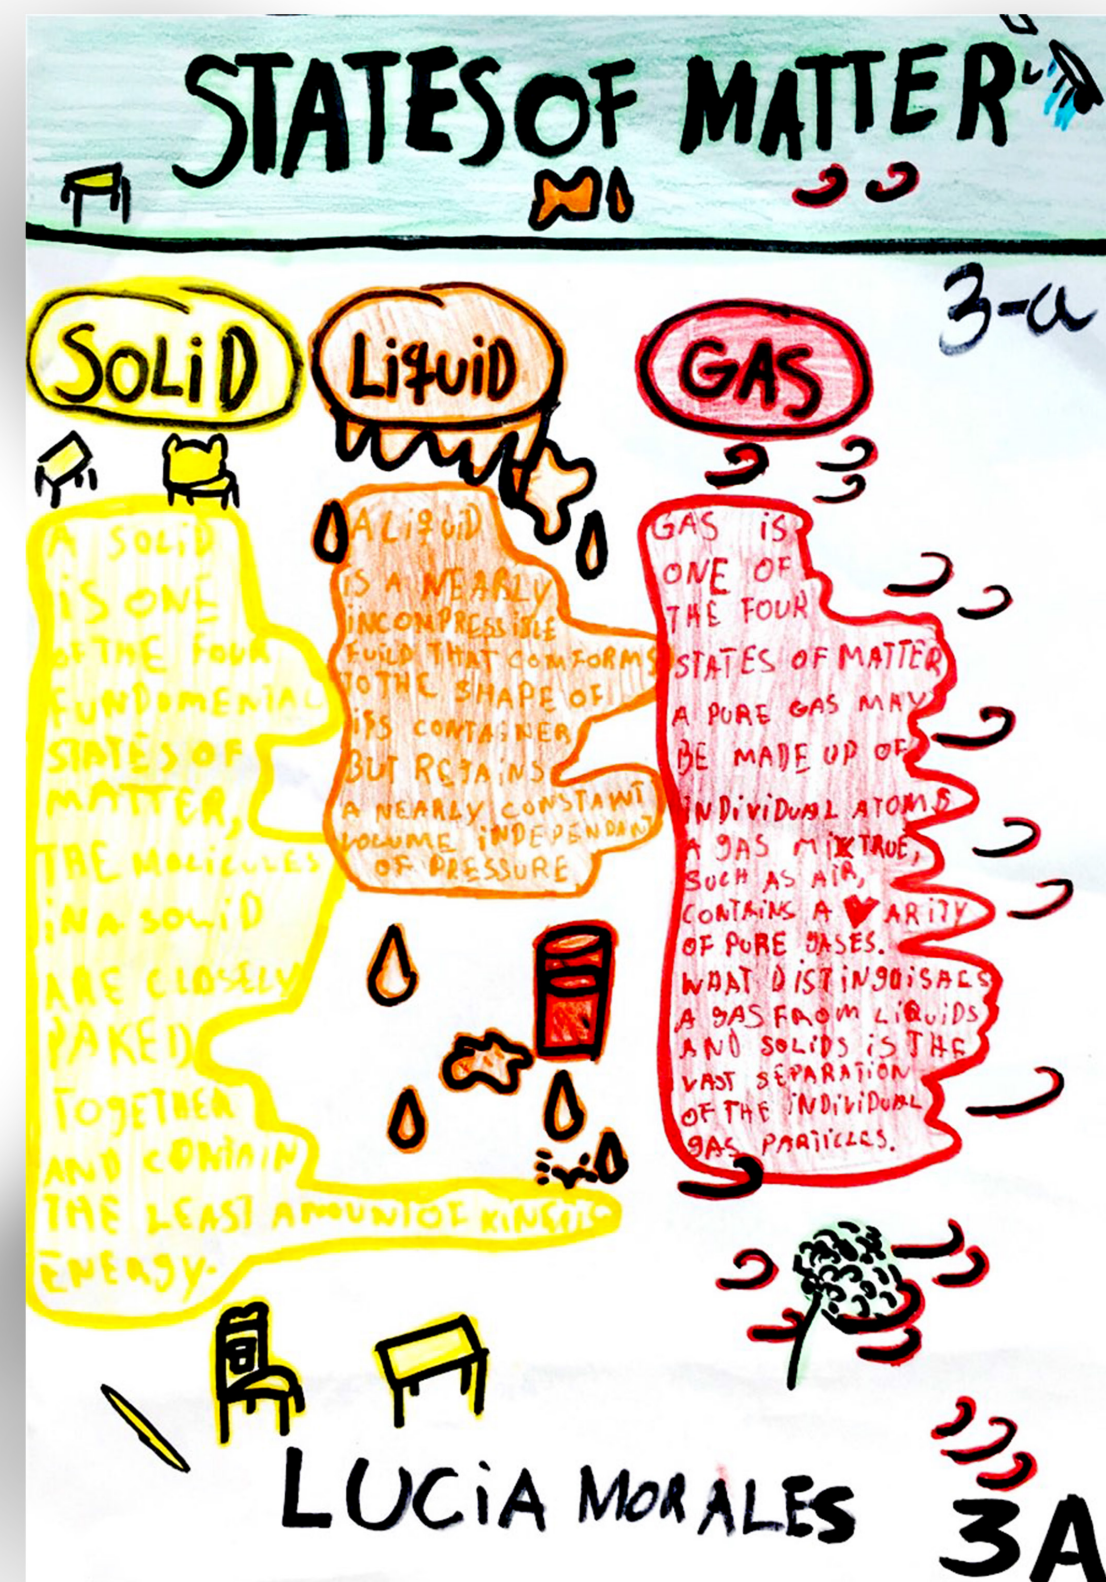 STATES OF MATTER
3-a
SOLiD
A SOLiD
iS ONE
OF THE FOUR
FUNDOMENTAL
STATES OF
MATTER,
THE MOLICULES
iN A SOLiD
ARE CLOSELY
PAKED
TOgETHER
AND CONTAIN
THE LEAST AMOUNT OF KINETIC
ENERgY.
LiquiD
A LiquiD
iS A NEARLY
iNCOMPRESSIBLE
FUILD THAT COMFORMS
TO THE SHAPE OF
iTS CONTAINER
BUT RETAINS
A NEARLY CONSTANT
VOLUME iNDEPENDANT
OF PRESSURE
GAS
GAS iS
ONE OF
THE FOUR
STATES OF MATTER
A PURE GAS MAY
BE MADE UP OF
iNDiViDUAL ATOMS
A gAS MiXTRUE,
SUCH AS AIR,
CONTAINS A VARITY
OF PURE gASES.
WHAT DISTiNgUiSHES
A gAS FROM LiQUiDS
AND SOLiDS iS THE
VAST SEPARATION
OF THE iNDiViDUAL
gAS PARTICLES.
LUCiA MORALES
3A